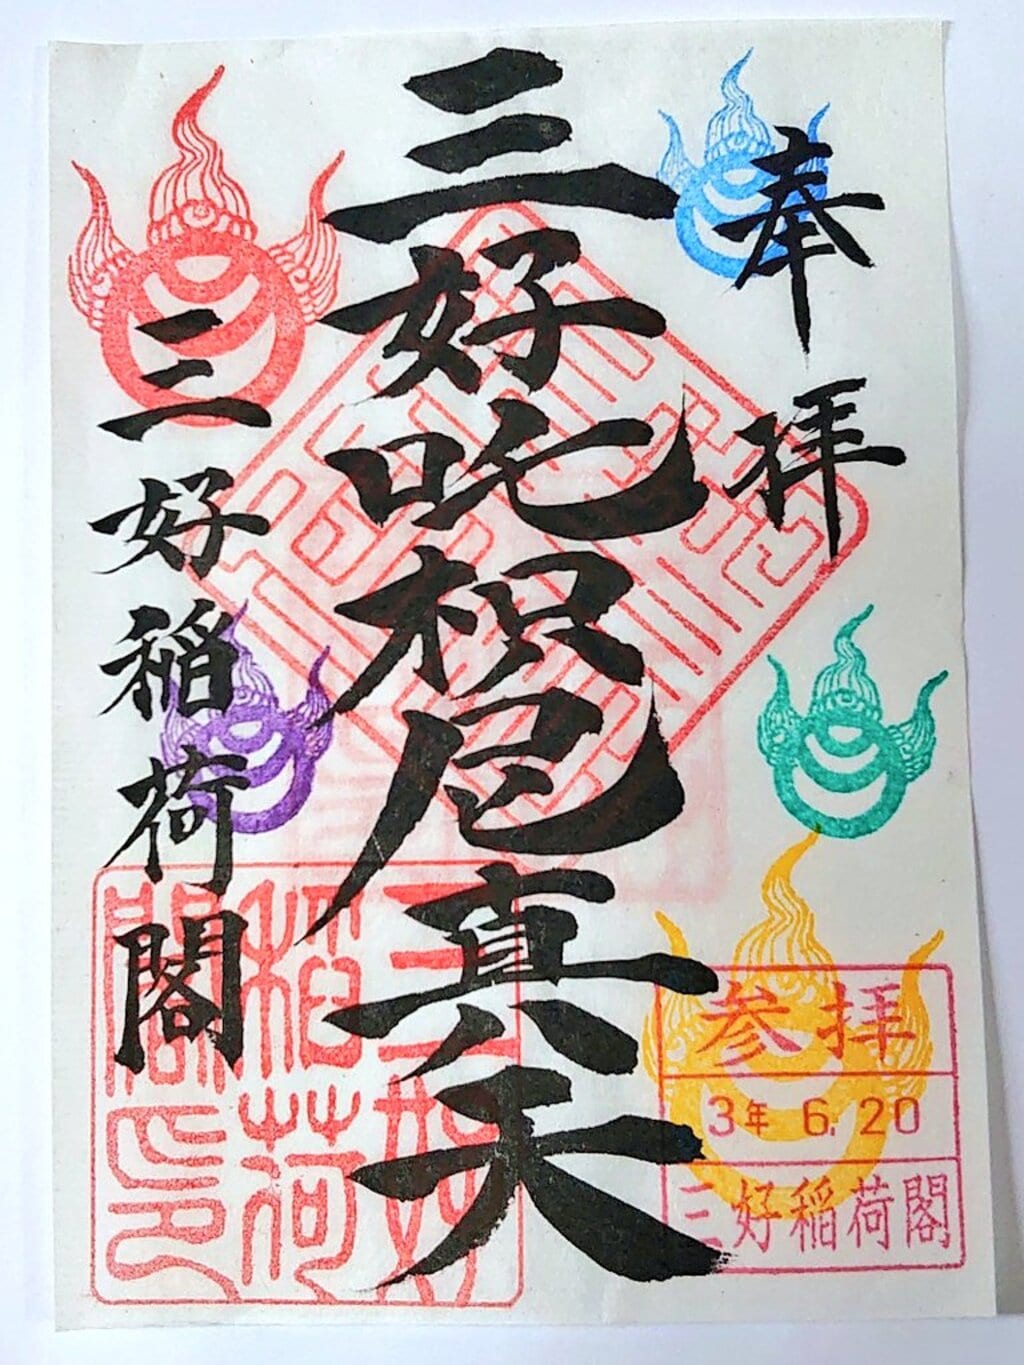 奉拝
三好吒枳尼真天
三好稲荷閣
三好稲荷閣印
参拝
3年 6.20
三好稲荷閣